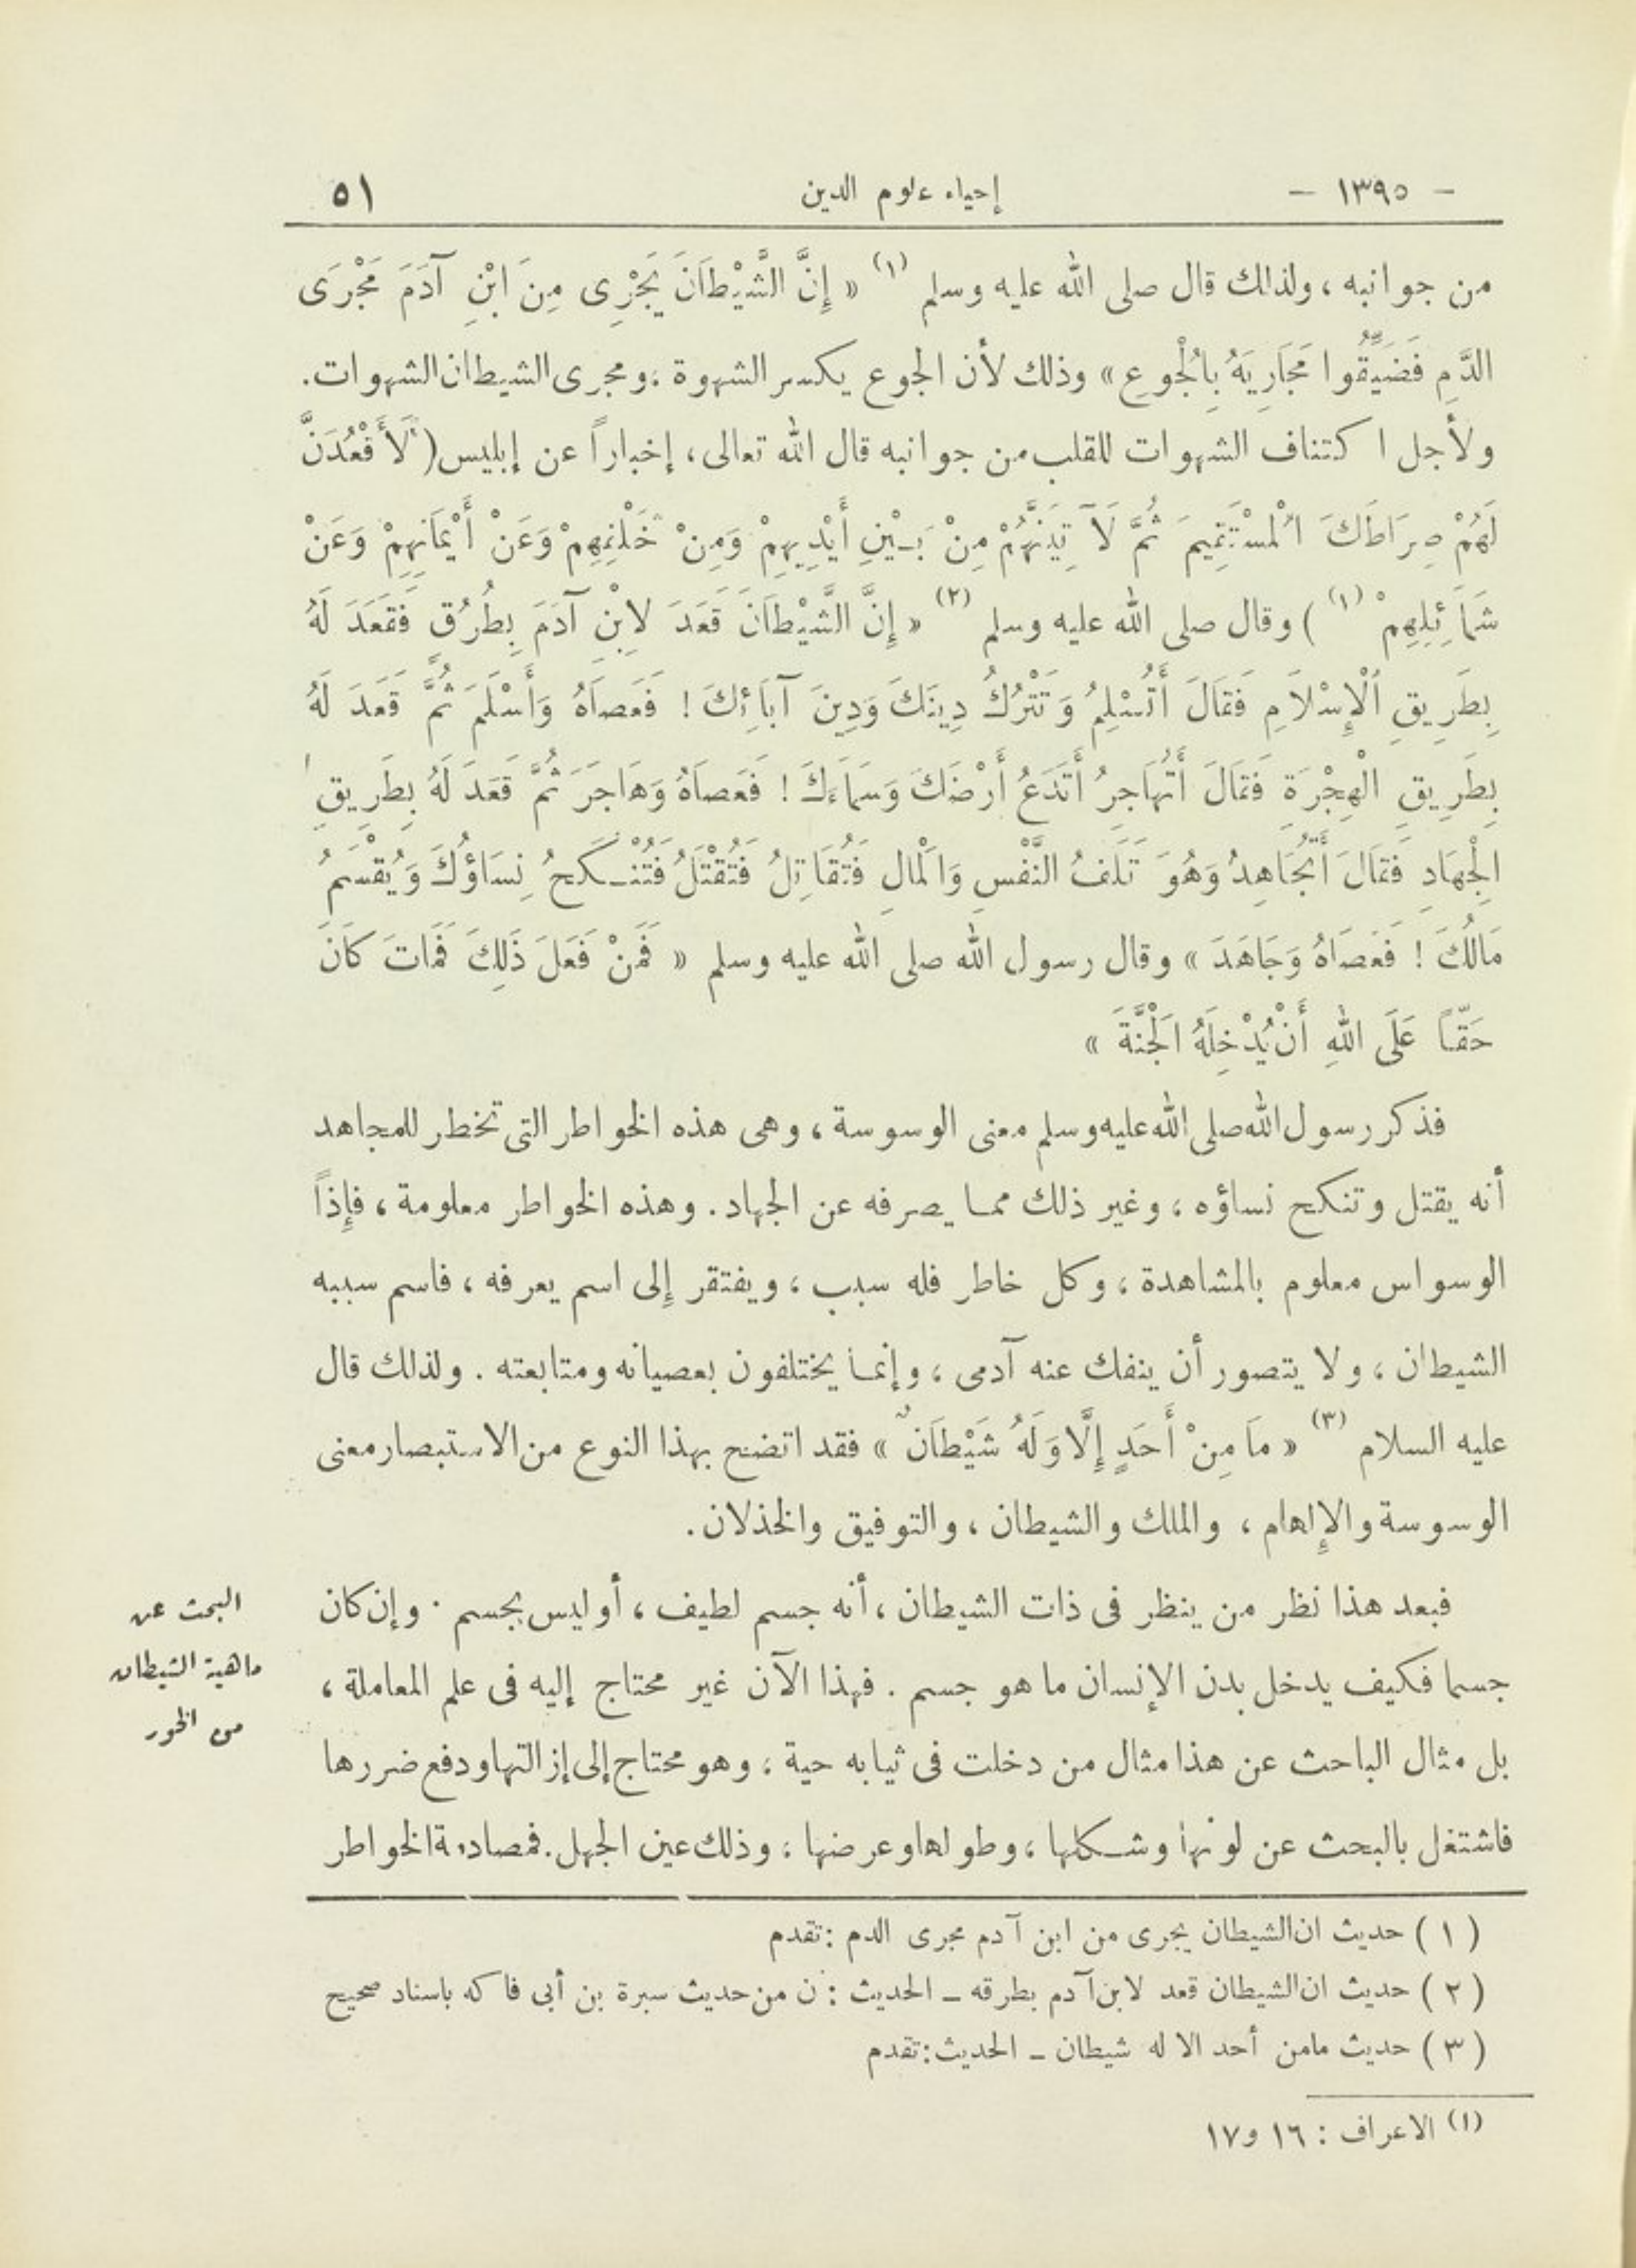 - ١٣٩٥ - إحياء علوم الدين ٥١
من جوانبه ، ولذلك قال صلى الله عليه وسلم (١) « إِنَّ الشَّيْطَانَ يَجْرِى مِنَ ابْنِ آدَمَ مَجْرَى
الدَّمِ فَضَيِّقُوا مَجَارِيَهُ بِالْجُوعِ » وذلك لأن الجوع يكسر الشهوة ، ومجرى الشيطان الشهوات .
ولأجل اكتناف الشهوات للقلب من جوانبه قال الله تعالى ، إخباراً عن إبليس ( لَأَقْعُدَنَّ
لَهُمْ صِرَاطَكَ الْمُسْتَقِيمَ ثُمَّ لَآتِيَنَّهُمْ مِنْ بَيْنِ أَيْدِيهِمْ وَمِنْ خَلْفِهِمْ وَعَنْ أَيْمَانِهِمْ وَعَنْ
شَمَائِلِهِمْ (١) ) وقال صلى الله عليه وسلم (٢) « إِنَّ الشَّيْطَانَ قَعَدَ لِابْنِ آدَمَ بِطُرُقٍ فَقَعَدَ لَهُ
بِطَرِيقِ الْإِسْلَامِ فَقَالَ أَتُسْلِمُ وَتَتْرُكُ دِينَكَ وَدِينَ آبَائِكَ ! فَعَصَاهُ وَأَسْلَمَ ثُمَّ قَعَدَ لَهُ
بِطَرِيقِ الْهِجْرَةِ فَقَالَ أَتُهَاجِرُ أَتَدَعُ أَرْضَكَ وَسَمَاءَكَ ! فَعَصَاهُ وَهَاجَرَ ثُمَّ قَعَدَ لَهُ بِطَرِيقِ
الْجِهَادِ فَقَالَ أَتُجَاهِدُ وَهُوَ تَلَفُ النَّفْسِ وَالْمَالِ فَتُقَاتِلُ فَتُقْتَلُ فَتُنْكَحُ نِسَاؤُكَ وَيُقْسَمُ
مَالُكَ ! فَعَصَاهُ وَجَاهَدَ » وقال رسول الله صلى الله عليه وسلم « فَمَنْ فَعَلَ ذَلِكَ فَمَاتَ كَانَ
حَقًّا عَلَى اللهِ أَنْ يُدْخِلَهُ الْجَنَّةَ »
فذكر رسول الله صلى الله عليه وسلم معنى الوسوسة ، وهى هذه الخواطر التى تخطر للمجاهد
أنه يقتل وتنكح نساؤه ، وغير ذلك مما يصرفه عن الجهاد . وهذه الخواطر معلومة ، فإذاً
الوسواس معلوم بالمشاهدة ، وكل خاطر فله سبب ، ويفتقر إلى اسم يعرفه ، فاسم سببه
الشيطان ، ولا يتصور أن ينفك عنه آدمى ، وإنما يختلفون بعصيانه ومتابعته . ولذلك قال
عليه السلام (٣) « مَا مِنْ أَحَدٍ إِلَّا وَلَهُ شَيْطَانٌ » فقد اتضح بهذا النوع من الاستبصار معنى
الوسوسة والإلهام ، والملك والشيطان ، والتوفيق والخذلان .
فبعد هذا نظر من ينظر فى ذات الشيطان ، أنه جسم لطيف ، أو ليس بجسم . وإن كان
جسما فكيف يدخل بدن الإنسان ما هو جسم . فهذا الآن غير محتاج إليه فى علم المعاملة ،
بل مثال الباحث عن هذا مثال من دخلت فى ثيابه حية ، وهو محتاج إلى إزالتها ودفع ضررها
فاشتغل بالبحث عن لونها وشكلها ، وطولها وعرضها ، وذلك عين الجهل . فمصادمة الخواطر
البحث عن
ماهية الشيطان
من الخور
( ١ ) حديث ان الشيطان يجرى من ابن آدم مجرى الدم : تقدم
( ٢ ) حديث ان الشيطان قعد لابن آدم بطرقه ـ الحديث : ن من حديث سبرة بن أبى فاكه باسناد صحيح
( ٣ ) حديث مامن أحد الا له شيطان ـ الحديث : تقدم
(١) الاعراف : ١٦ و١٧